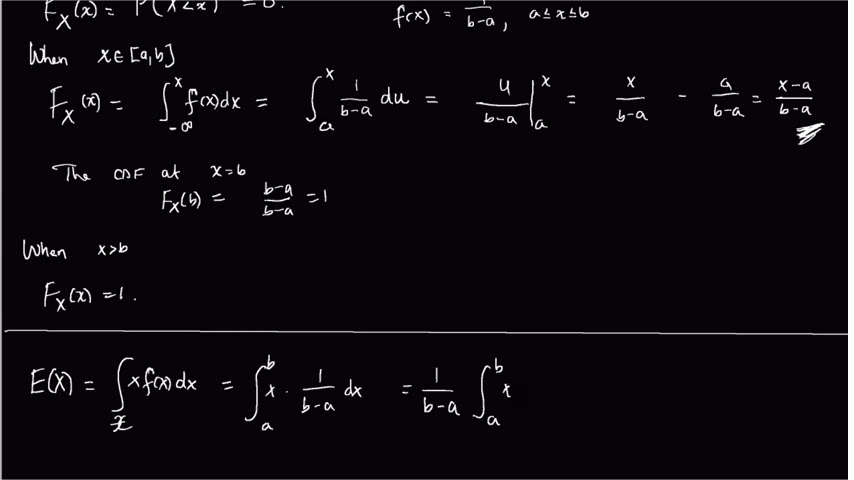 F_X(x) = P(X<x) = 0.
f(x) = 1/(b-a), a≤x≤b
When x∈[a,b]
F_X(x) = ∫_{-∞}^{x} f(x)dx = ∫_{a}^{x} 1/(b-a) du = u/(b-a) |_{a}^{x} = x/(b-a) - a/(b-a) = (x-a)/(b-a)
The CDF at x=b
F_X(b) = (b-a)/(b-a) = 1
When x>b
F_X(x) = 1.
E(X) = ∫_{x} x f(x) dx = ∫_{a}^{b} x · 1/(b-a) dx = 1/(b-a) ∫_{a}^{b} x